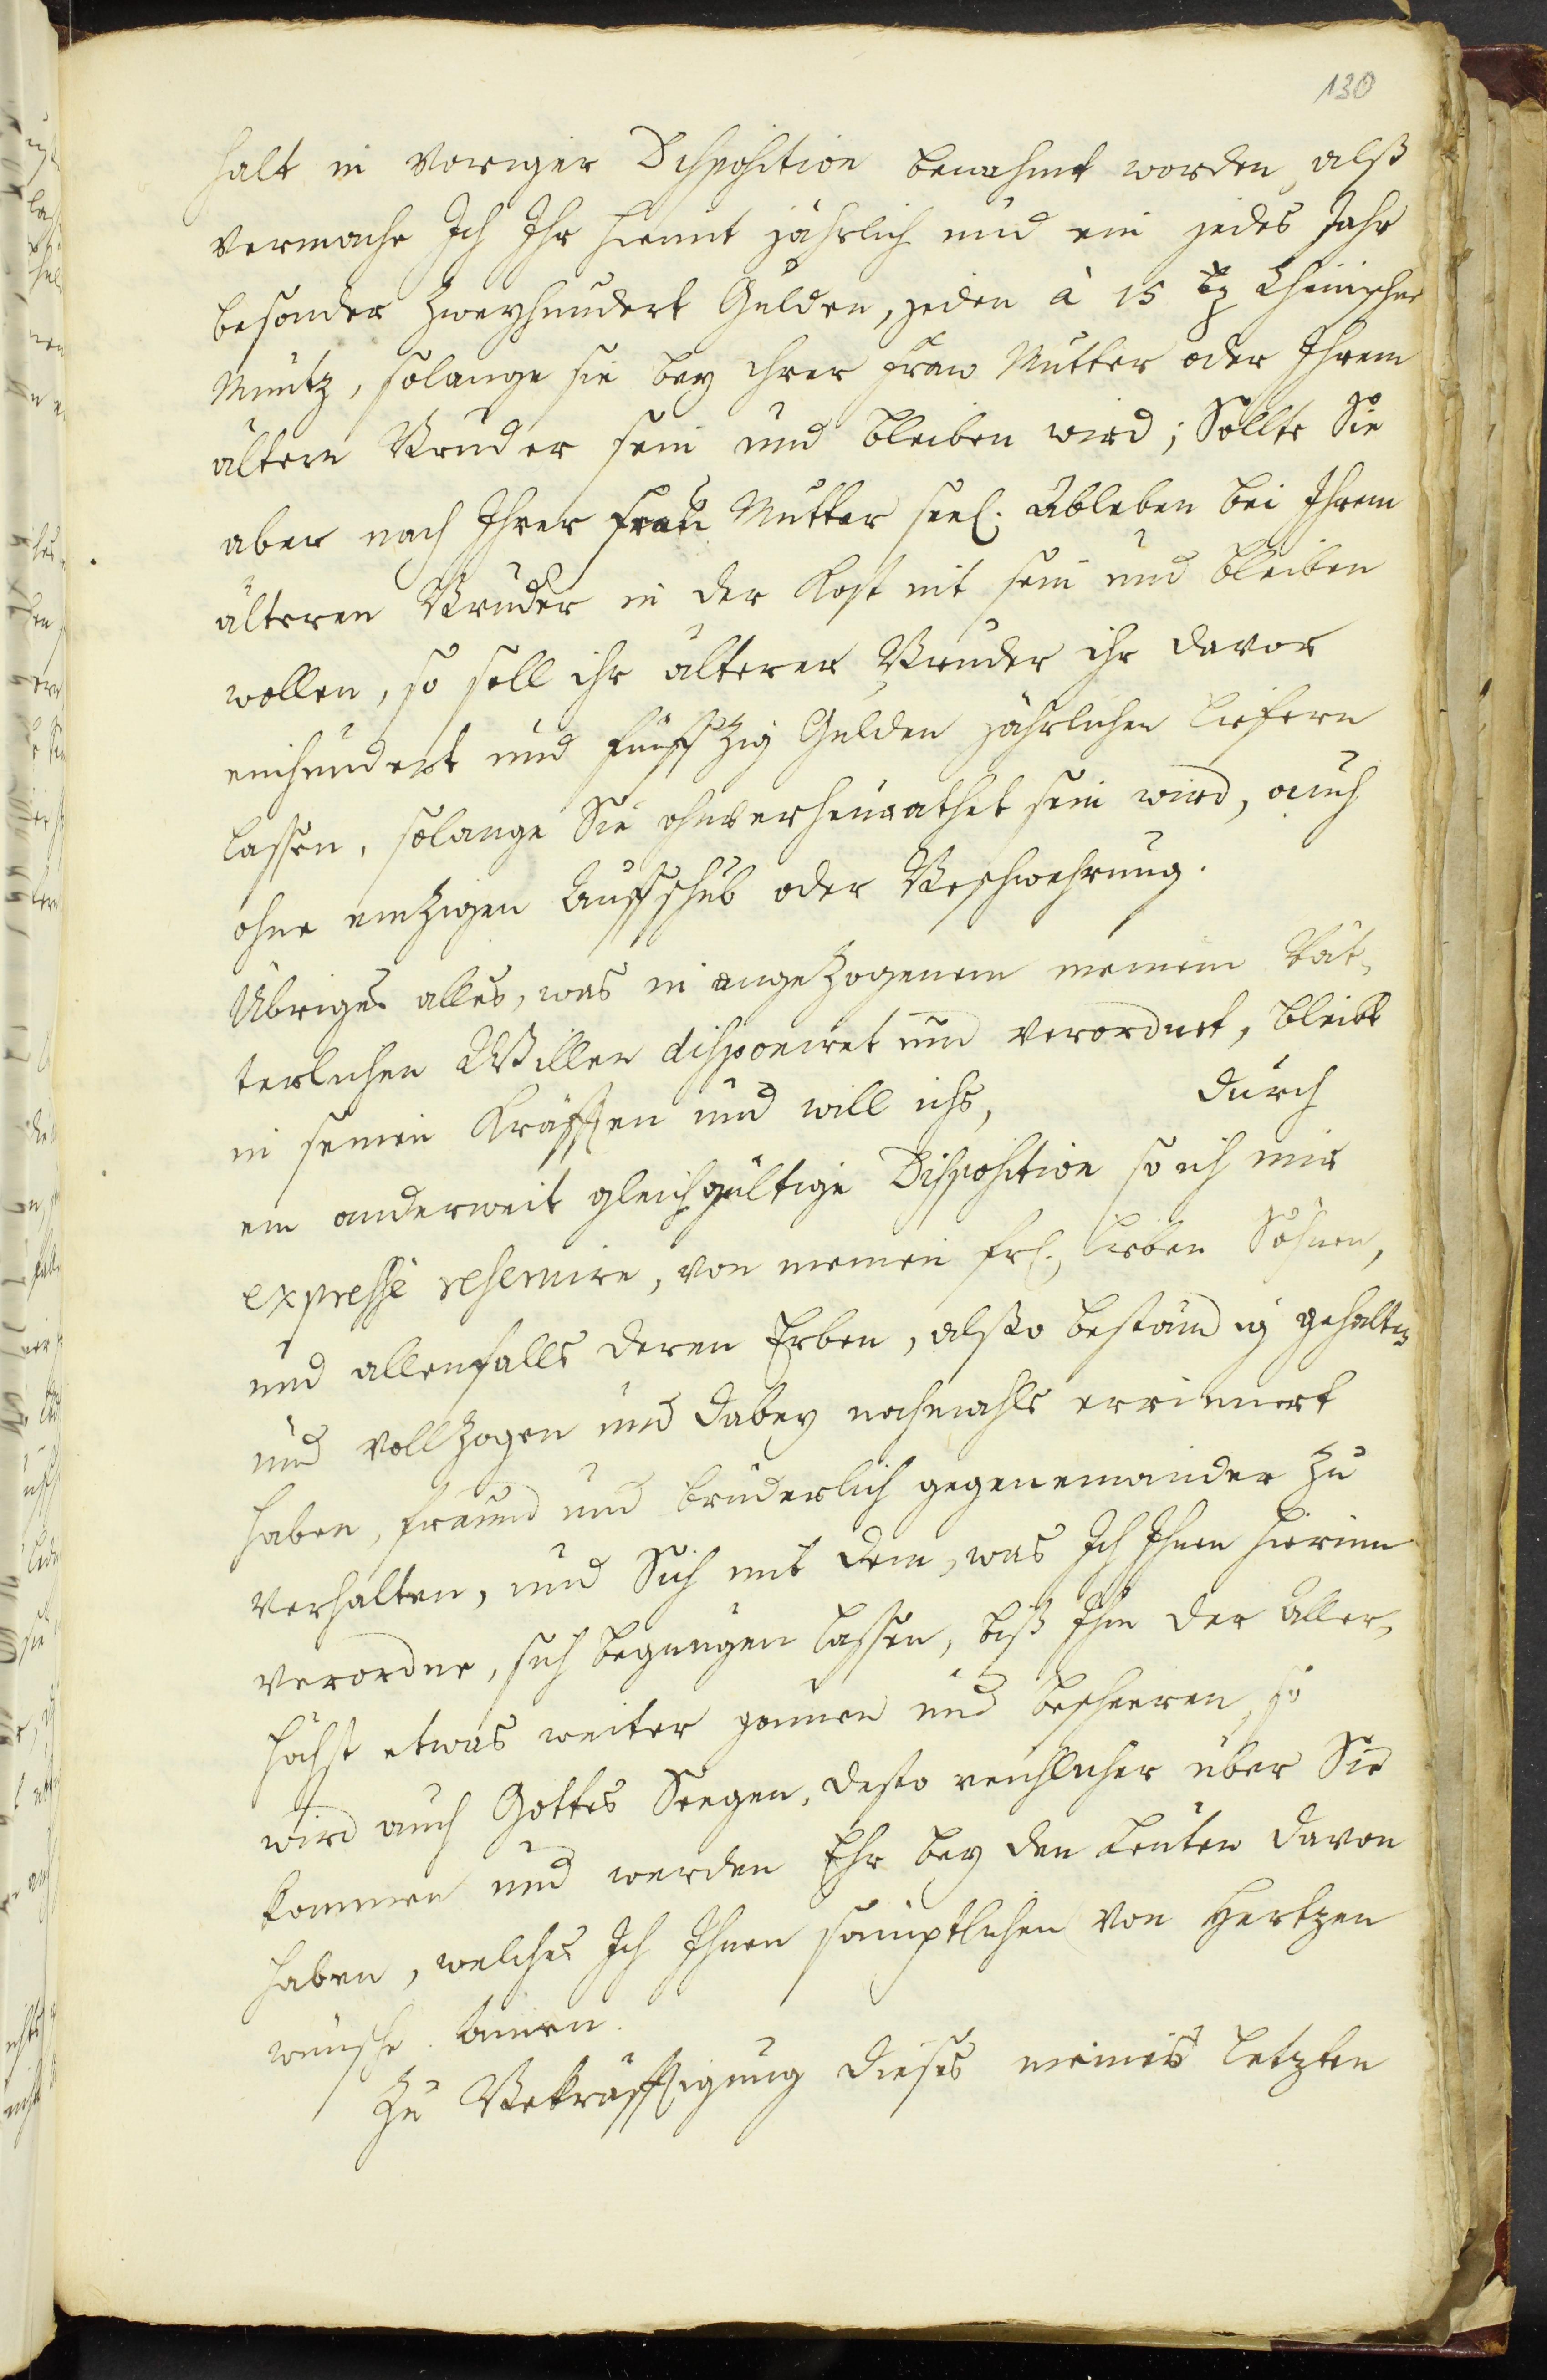 130
halt in voriger Disposition benahmt worden, alß
vermache Ich Ihr hiemit jährlich und ein jedes Jahr
besonder zweyhundert Gulden, jeden à 15 bz Rheinischer
Müntz, solange sie bey ihrer Fraw Mutter oder Ihrem
ältern Bruder sein und bleiben wird; Sollte Sie
aber nach Ihrer Frau Mutter seel. Ableben bei Ihrem
älteren Bruder in der Kost nit sein und bleiben
wollen, so soll ihr älterer Bruder ihr davor
einhundert und fünffzig Gulden jährlichen liefern
lassen, solange Sie ohnverheurathet sein wird, auch
ohne einzigen Auffschub oder Beschwehrung.
Übriges alles, was in angezogenem meinem Vät-
terlichen Willen disponiret und verordnet, bleibt
in seinen Kräfften und will ichs, durch
ein anderweit gleichgültige Disposition so ich mir
expressè reservire, von meinen frl. lieben Söhnen,
und allenfalls deren Erben, alßo beständig gehalten
und vollzogen und dabey nochmahls erinnert
haben, freund und brüderlich gegeneinander zu
verhalten, und Sich mit dem, was Ich Ihnen hierinn
verordne, sich begnügen lassen, biß Ihn der Aller-
höchst etwas weiter gönnen und bescheeren, so
wird auch Gottes Seegen, desto reichlicher über Sie
kommen und werden Ehr bey den Leuten davon
haben, welches Ich Ihnen sämptlichen von Hertzen
wünsche. Amen.
Zu Bekräfftigung dieses meines letzten